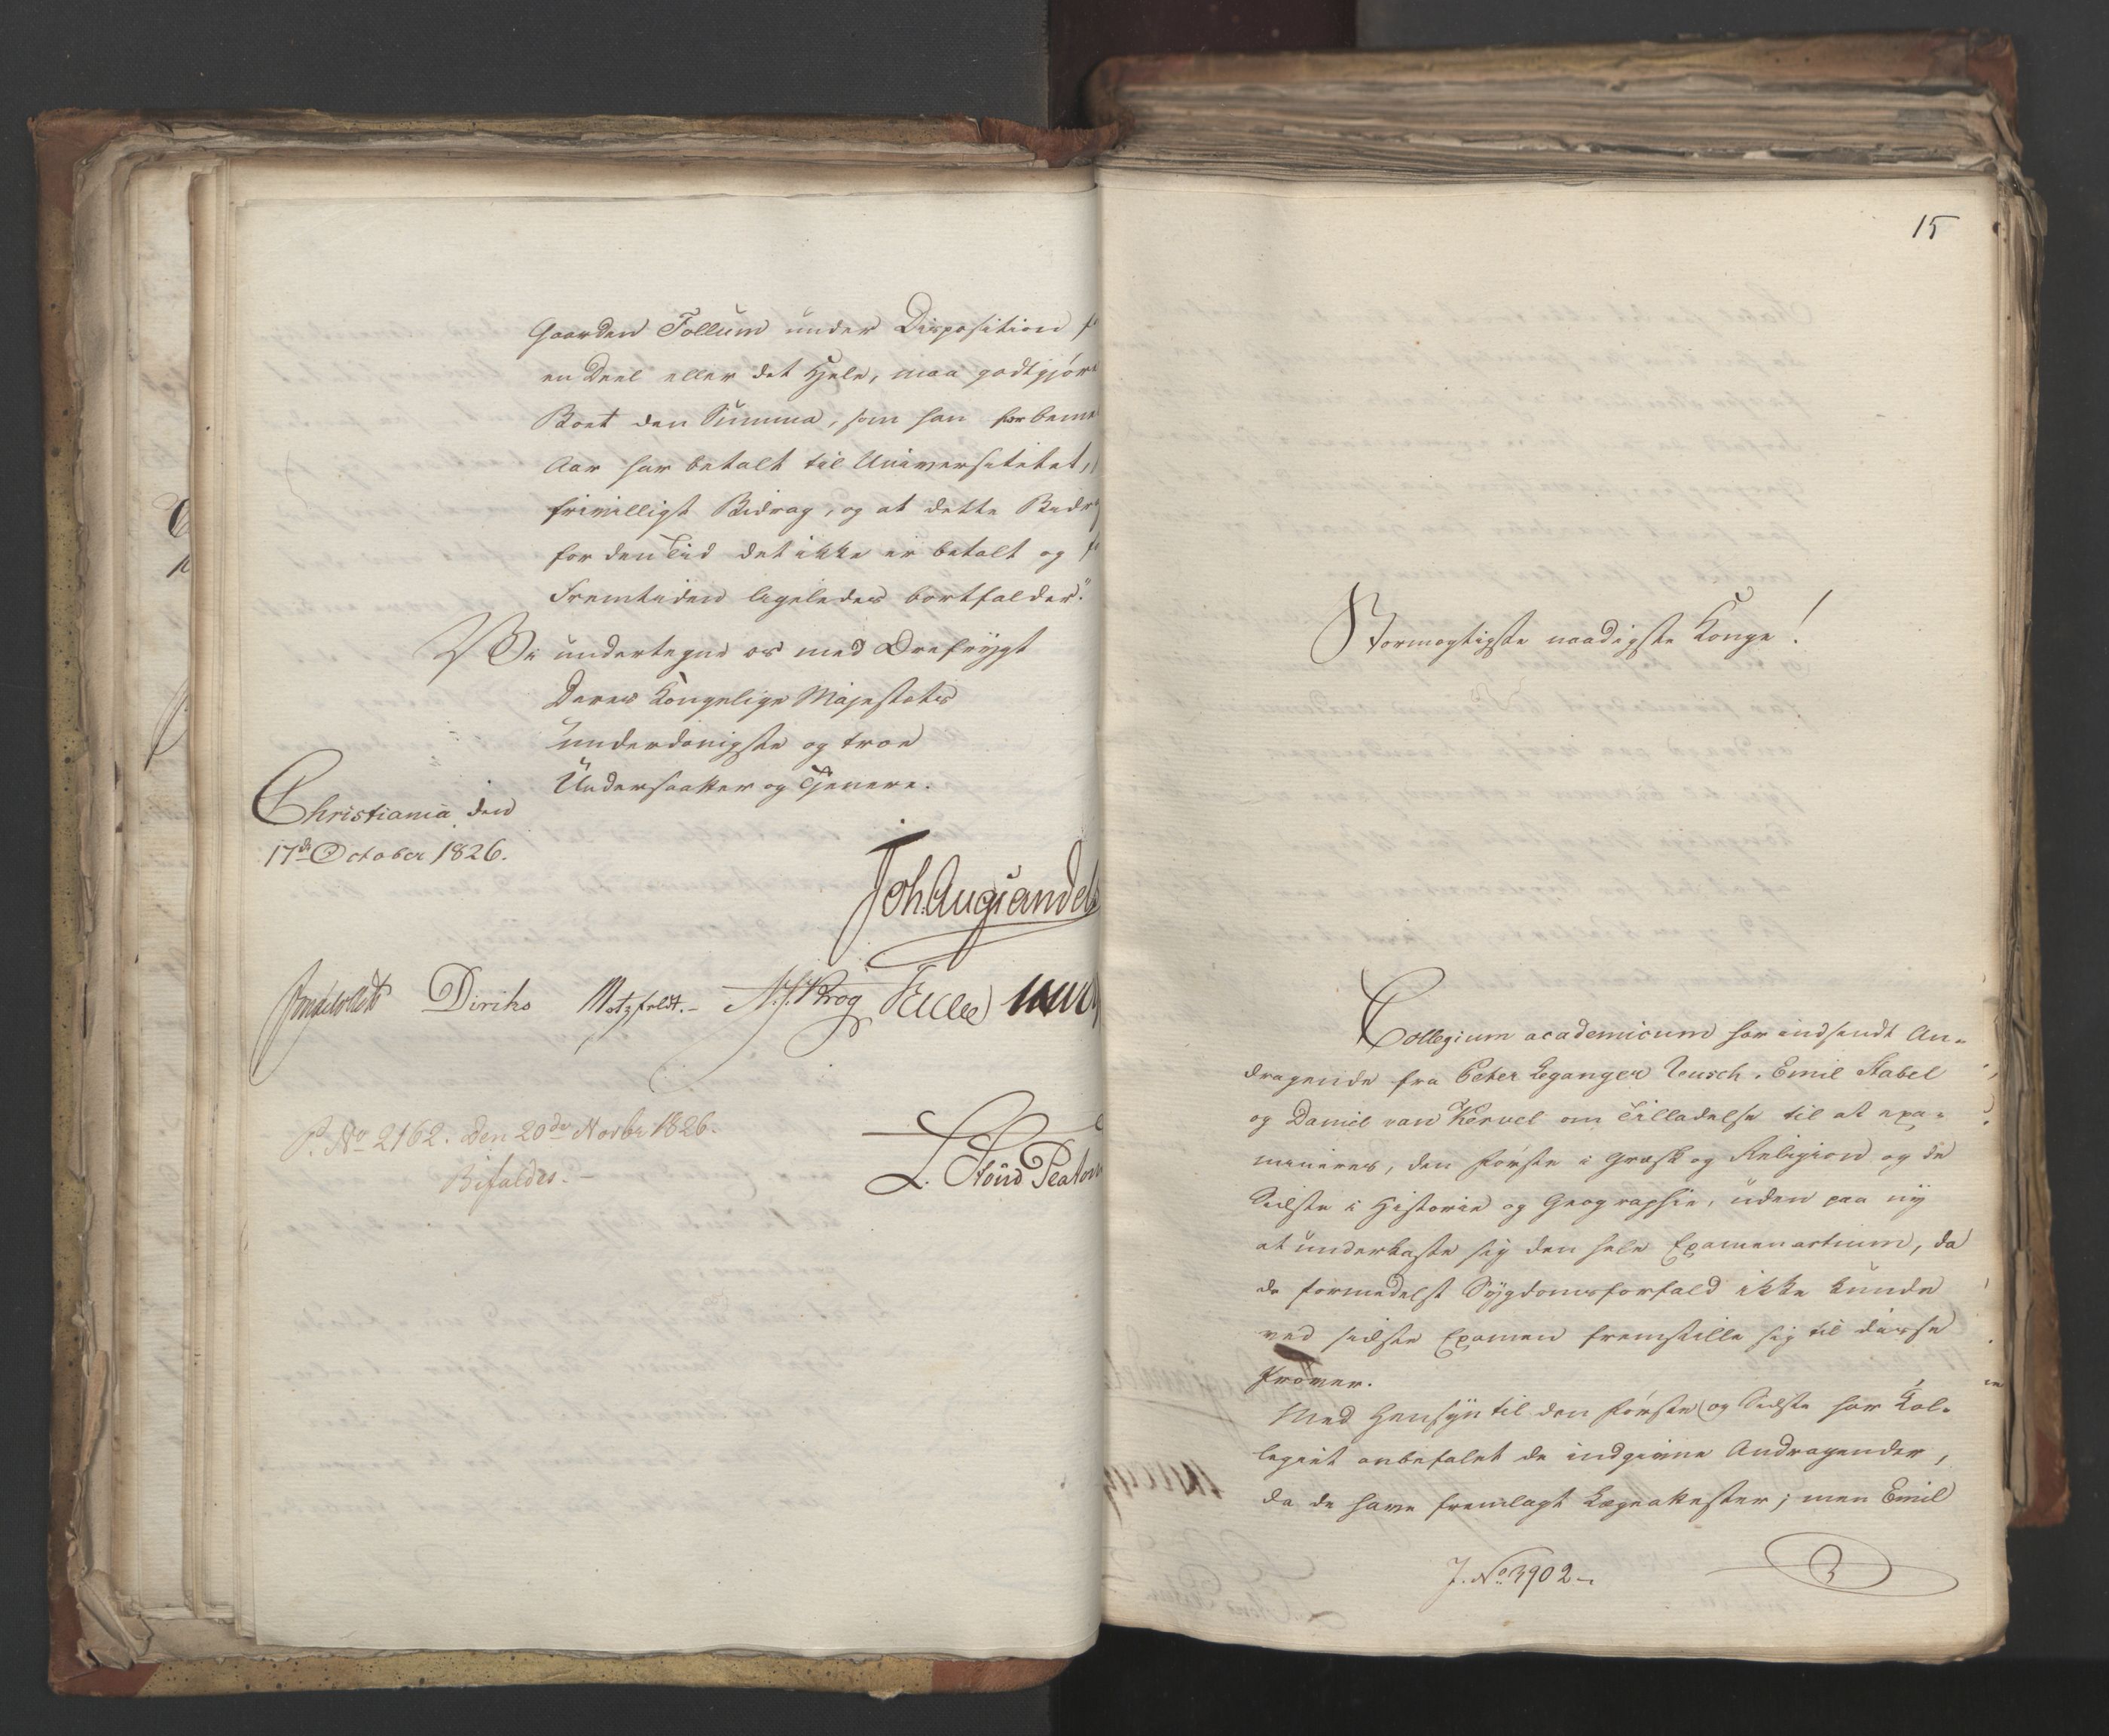 Gaarden Follum under Disposition
en Deel eller det Hele, maa godtgjøre
Boet den Summa, som han for beme
Aar har betalt til Universitetet,
frivilligt Bidrag, og at dette Bidr
for den Tid det ikke er betalt og f
Fremtiden ligeledes bortfalder."
Vi undertegne os med Ærefrygt
Deres Kongelige Majestæts
underdanigste og troe
Undersaatter og Tjenere.
Christiania den
17de October 1826.
Joh. Aug: Sandels
Diriks Motzfeldt. N. J. Krog
P. No 2162. den 20de Novbr 1826.
Bifaldes. -
L. Stoud Platou
15
Stormægtigste naadigste Konge!
Collegium academicum har indsendt An-
dragende fra Peter Leganger Reusch, Emil Stabel
og Daniel van Kervel om Tilladelse til at exa-
mineres, den første i Græsk og Religion og de
Sidste i Historie og Geographie, uden paa ny
at underkaste sig den hele Examen artium, da
de formedelst Sygdomsforfald ikke kunde
ved sidste Examen fremstille sig til disse
Prøver.
Med Hensyn til den første og Sidste har Kol-
legiet anbefalet de indgivne Andragender,
da de have fremlagt Lægeattester; men Emil
J. No 3902 -